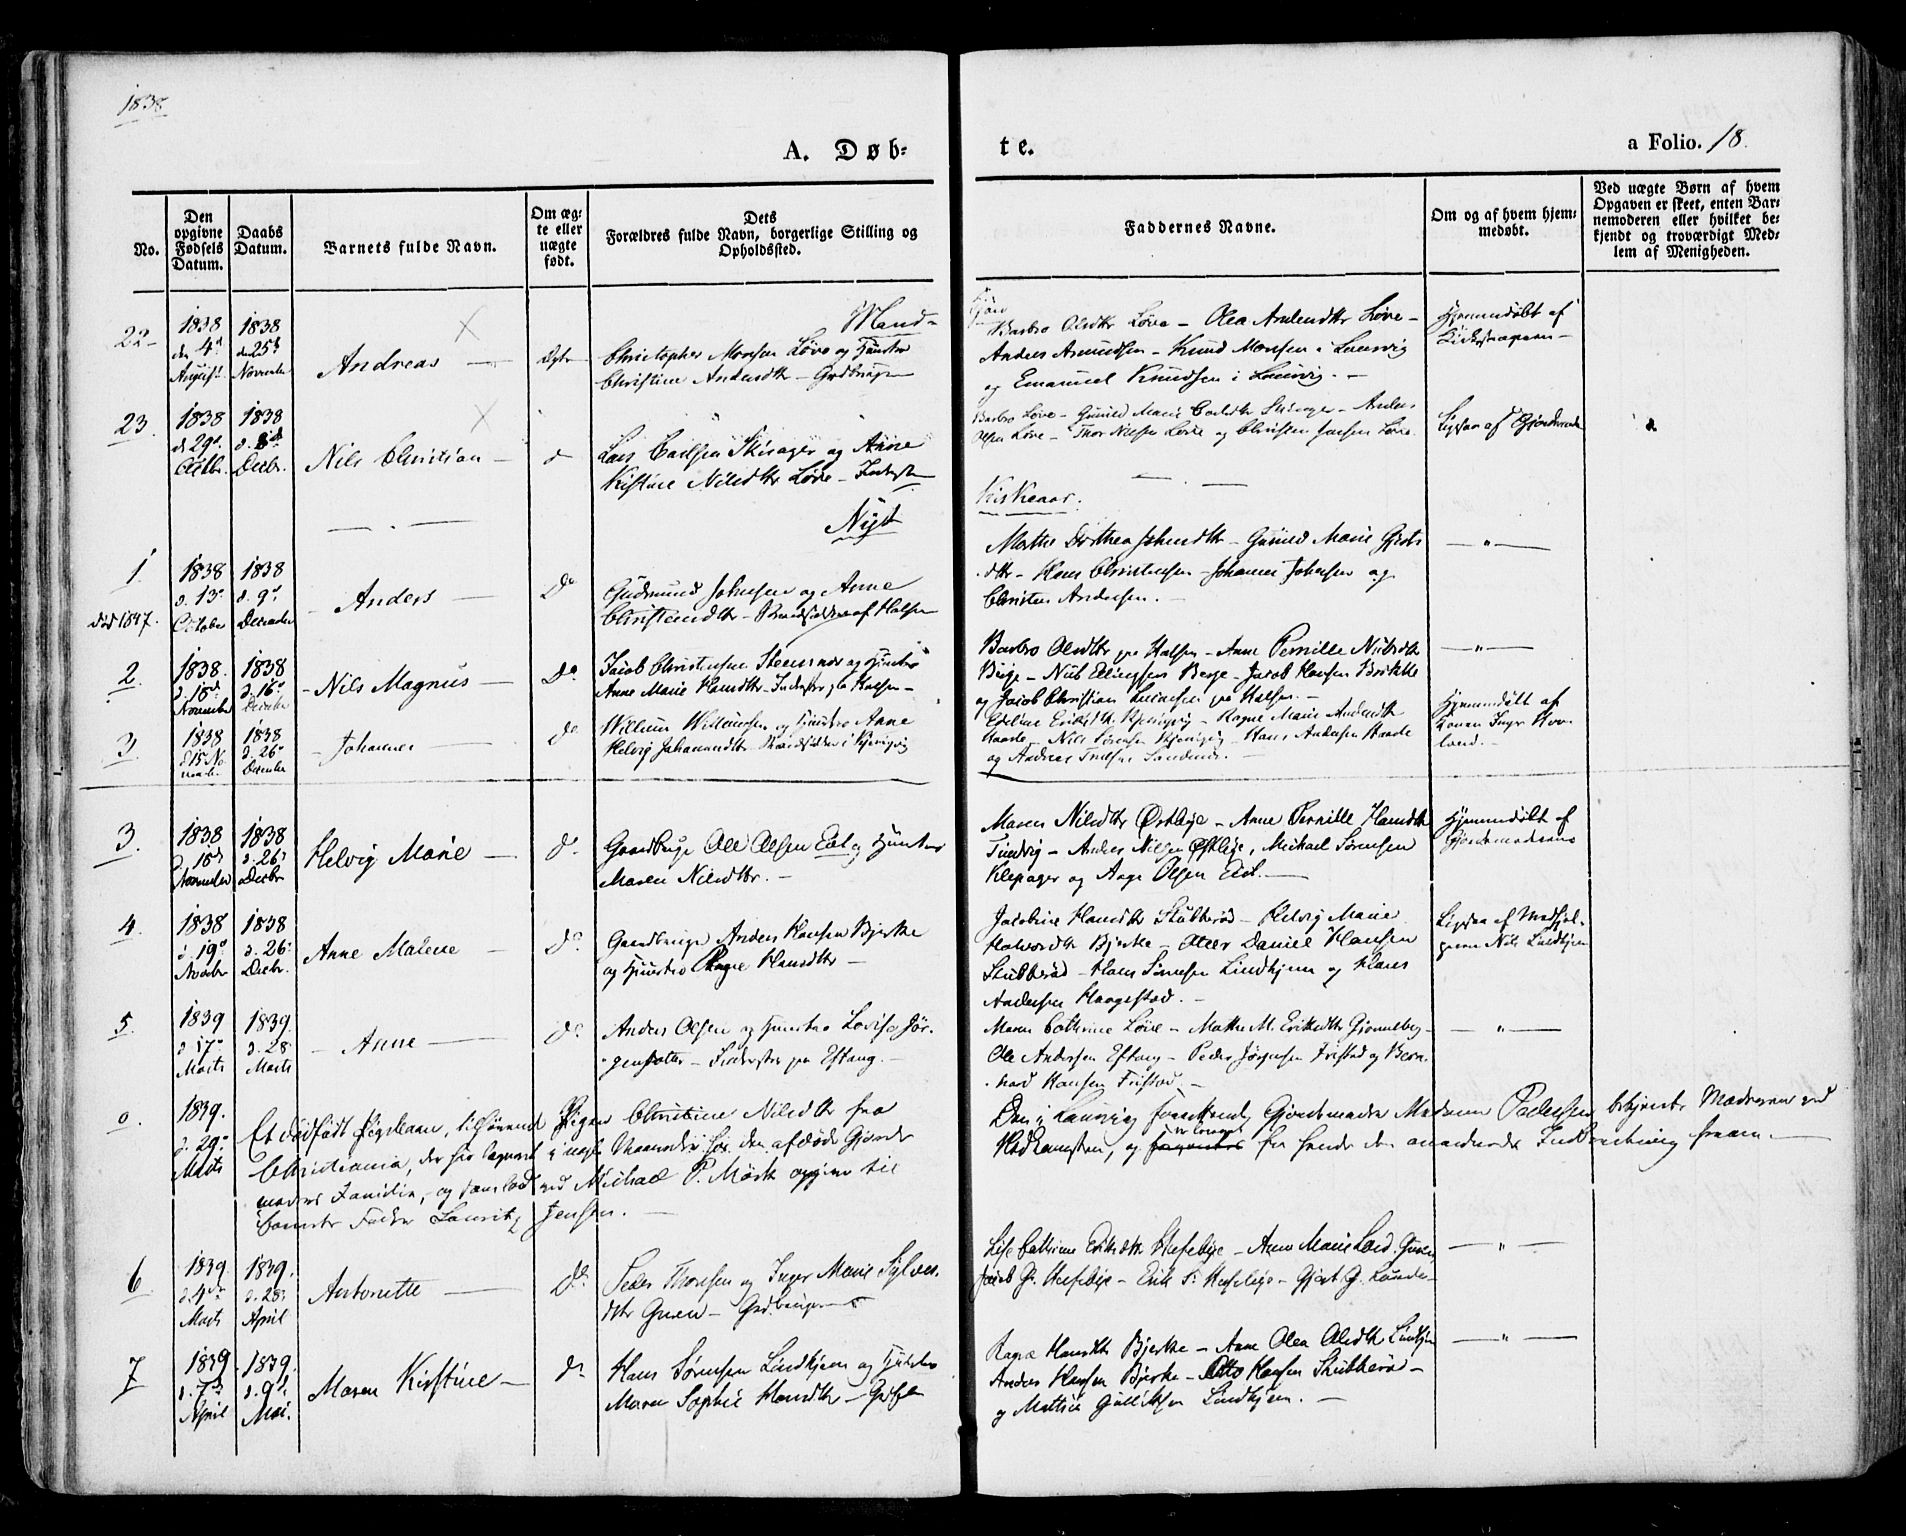 1838
A. Døb-
te.
a Folio. 18.
No.
Den opgivne Fødsels Datum.
Daabs Datum.
Barnets fulde Navn.
Om æg-
te eller
uægte
født.
Dets
Forældres fulde Navn, borgerlige Stilling og
Opholdssted.
Faddernes Navne.
Om og af hvem hjem-
medøbt.
Ved uægte Børn af hvem
Opgaven er skeet, enten Bar-
nemoderen eller hvilket be-
kjendt og troværdigt Med-
lem af Menigheden.
22
1838
den 4d
August
1838
den 25d
November
Andreas
Ægte
Mand-
Christopher Monsen Løve og Hustro
Christine Andersdtr - Grdbruger
Barbro Olsdtr Løve - Olea Andersdtr Løve -
Anders Asmundsen - Knud Monsen i Laurvig
og Emanuel Knudsen i Laurvig. -
Hjemmedøbt af
23.
1838
d. 29d
Octbr.
1838
d. 8d
Decbr.
Nils Christian
Lars Carlsen Skisager og Anne
Kistine Nilsdtr Løve - Inderste
Barbro Løve - Gunild Marie Carlsdtr Skisager - Anders
Olsen Løve - Thor Nilsen Løve og Christen Jensen Løve.
Ligesaa af Gjordemoder
Nyt
Kirkeaar.
1.
død 1847.
1838
d. 13d
October
1838
d. 9d
December
Anders
Do
Gudmund Johnsen og Anne
Christensdtr - af Halsen
Marthe Dorthea Johnsdtr - Gunild Marie Gjerts
dtr - Hans Christensen - Johannes Johnsen og
Christen Andersen. -
- " -
2.
1838.
d. 18d
November
1838
d. 16d
December
Nils Magnus
Do
Jacob Christensen Steensnæs og Hustro
Anne Marie Hansdtr - Inderster paa Halsen -
Barbro Olsdtr paa Halsen - Anne Pernille Nilsdtr
Berge - Nils Ellingsen Berge - Jacob Hansen Brekke
og Jacob Christian paa Halsen. -
- " -
3
1838
d 15 No
vember
1838
d. 26d
December
Johannes
Do
Willum Willumsen og Hustro Anne
Helvig Johannesdtr - Huusfolk i Kjerringvig
Eriksdtr Kjerringvig - Ragne Marie Andersdtr
Haarde - Nils Sørensen Kjerringvig - Hans Andersen Haarde
og Andreas -
Hjemmedøbt af
Konen Inger Hov-
land. -
3.
1838
d. 18d
November
1838
d. 26d
Decbr
Helvig Marie
Do
Gaardbruger Ole Olsen Eie og Hustro
Maren Nilsdtr. -
Maren Nilsdtr Østbye - Anne Pernille Hansdtr
Tindvig - Anders Nilsen Østbye, Michael Sørensen
Klepager og Aage Olsen Eie. -
Hjemmedøbt af
Gjordemoderen
4.
1838
d. 19d
Novbr
1838
d. 26d
Decbr.
Anne Malene
Do
Gaardbruger Anders Hansen Bjerke
og Hustro Ragne Hansdtr -
Jacobine Hansdtr Skubberød - Helvig Marie
Halvorsdtr Bjerke - Daniel Hansen
Skubberød - Hans Sørensen Lindhjem og Hans
Andersen Haagestad. -
Ligesaa af Medhjel-
peren Nils Lindhjem
5.
1839
d. 17d
Marts
1839.
d. 28
Marts
Anne
Do
Anders Olsen og Hustro Lovise Jør-
gensdatter - Inderster paa Eftang. -
Maren Cathrine Løve - Mathe M. Eriksdtr Gjonneberg -
Ole Andersen Eftang - Peder Jørgensen Fristad og Bern-
hard Hansen Fristad -
- " -
0.
1839.
d. 29d
Marts
Et dødfødt Pigebarn, tilhørende Pigen Christine Nilsdtr fra
Christiania, der har i nogle Maaneder hos den afdøde Gjorde
moders Familie, og som lod ved Michael P. Mørk opgive til
barnets Fader Lauritz Jensen. -
Den i Laurvig Gjordemoder Madame Pedersen, betjente Moderen ved
Nedkomsten, og for hende den anordnede Indberetning fraan. -
6
1839
d. 4d
Marts
1839.
d. 28d
April
Antonette
Do
Peder Thorsen og Inger Marie Sylves-
dtr Gusen - Grdbruger
Lise Cathrine Eriksdtr Hesebye - Anne Marie Gusen
Jacob G. Hesebye - Erik S. Hesebye - Gjert G.
- " -
7
1839
d. 7d
April
1839.
d. 9d
Mai.
Maren Kirstine
Do
Hans Sørensen Lindhjem og Hustro
Maren Sophie Hansdtr -
Ragne Hansdtr Bjerke - Anne Olea Olsdtr Lindhjem
Anders Hansen Bjerke - Otto Hansen Skubberød -
og Mathis Gulliksen Lindhjem. -
- " -